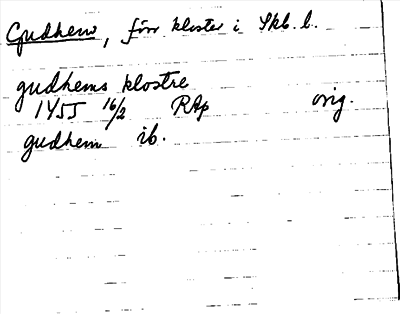 Gudhem, förr kloster i Skb. l.
gudhems klostre
1455 16/2 RAp orig.
gudhem ib.